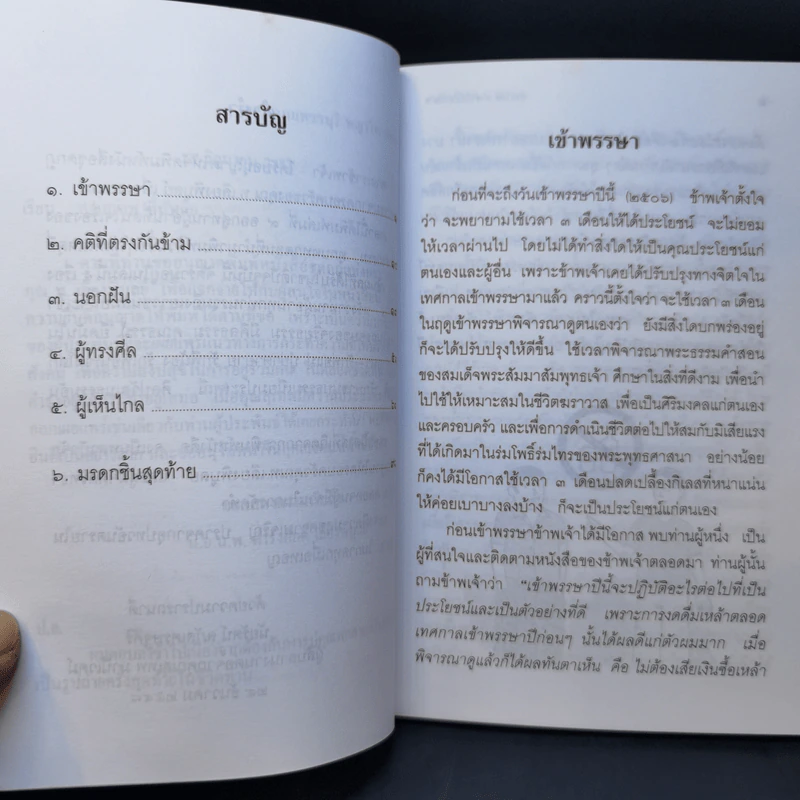 สารบัญ
๑. เข้าพรรษา
๒. คติที่ตรงกันข้าม
๓. นอกฝัน
๔. ผู้ทรงศีล
๕. ผู้เห็นไกล
๖. มรดกชิ้นสุดท้าย
เข้าพรรษา
ก่อนที่จะถึงวันเข้าพรรษาปีนี้ (๒๕๐๖) ข้าพเจ้าตั้งใจ
ว่า จะพยายามใช้เวลา ๓ เดือนให้ได้ประโยชน์ จะไม่ยอม
ให้เวลาผ่านไป โดยไม่ได้ทำสิ่งใดให้เป็นคุณประโยชน์แก่
ตนเองและผู้อื่น เพราะข้าพเจ้าเคยได้ปรับปรุงทางจิตใจใน
เทศกาลเข้าพรรษามาแล้ว คราวนี้ตั้งใจว่า จะใช้เวลา ๓ เดือน
ในฤดูเข้าพรรษาพิจารณาดูตนเองว่า ยังมีสิ่งใดบกพร่องอยู่
ก็จะได้ปรับปรุงให้ดีขึ้น ใช้เวลาพิจารณาพระธรรมคำสอน
ของสมเด็จพระสัมมาสัมพุทธเจ้า ศึกษาในสิ่งที่ดีงาม เพื่อนำ
ไปใช้ให้เหมาะสมในชีวิตฆราวาส เพื่อเป็นศิริมงคลแก่ตนเอง
และครอบครัว และเพื่อการดำเนินชีวิตต่อไปให้สมกับมีเสียแรง
ที่ได้เกิดมาในร่มโพธิ์ร่มไทรของพระพุทธศาสนา อย่างน้อย
ก็คงได้มีโอกาสใช้เวลา ๓ เดือนปลดเปลื้องกิเลสที่หนาแน่น
ให้ค่อยเบาบางลงบ้าง ก็จะเป็นประโยชน์แก่ตนเอง
ก่อนเข้าพรรษาข้าพเจ้าได้มีโอกาส พบท่านผู้หนึ่ง เป็น
ผู้ที่สนใจและติดตามหนังสือของข้าพเจ้าตลอดมา ท่านผู้นั้น
ถามข้าพเจ้าว่า "เข้าพรรษาปีนี้จะปฏิบัติอะไรต่อไปที่เป็น
ประโยชน์และเป็นตัวอย่างที่ดี เพราะการงดดื่มเหล้าตลอด
เทศกาลเข้าพรรษาปีก่อนๆ นั้นได้ผลดีแก่ตัวผมมาก เมื่อ
พิจารณาดูแล้วก็ได้ผลทันตาเห็น คือ ไม่ต้องเสียเงินซื้อเหล้า